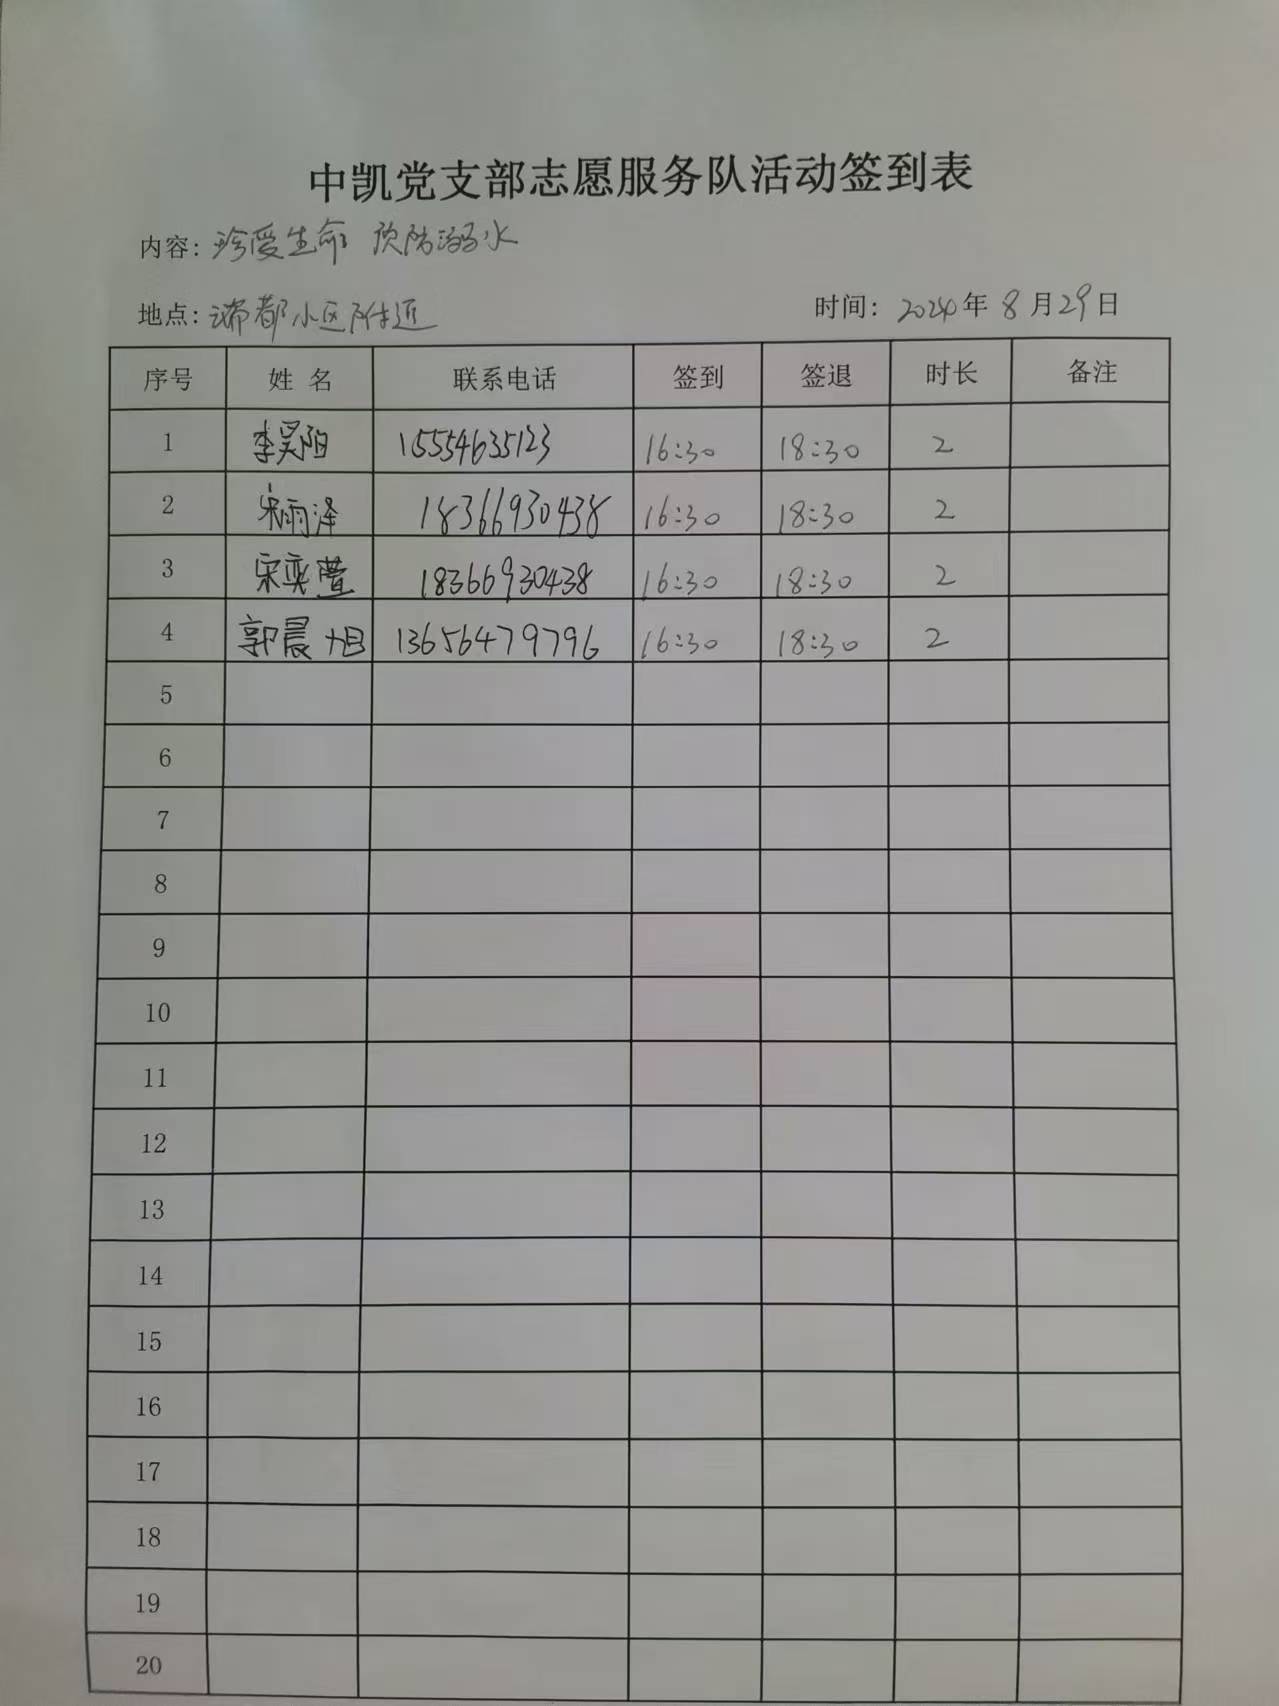 中凯党支部志愿服务队活动签到表
内容：珍爱生命 预防溺水
地点：瑞都小区附近 时间：2024年8月29日
序号 姓名 联系电话 签到 签退 时长 备注
1 李昊阳 15554635123 16:30 18:30 2
2 宋雨泽 18366930438 16:30 18:30 2
3 宋奕萱 18366930438 16:30 18:30 2
4 郭晨旭 13656479796 16:30 18:30 2
5
6
7
8
9
10
11
12
13
14
15
16
17
18
19
20